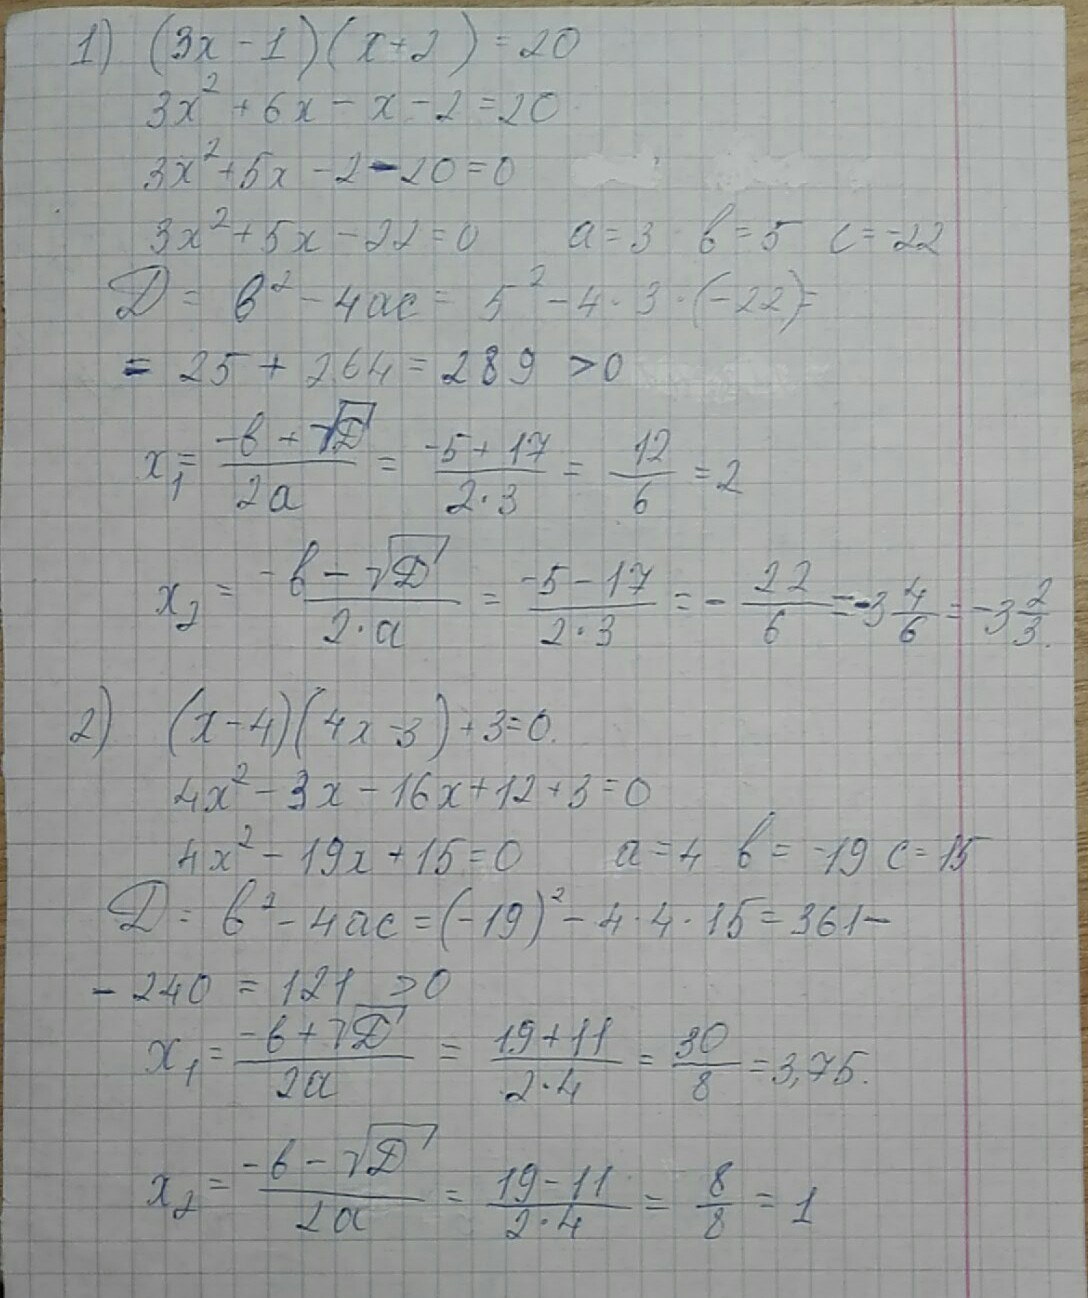 1) (3x - 1)(x + 2) = 20
3x² + 6x - x - 2 = 20
3x² + 5x - 2 - 20 = 0
3x² + 5x - 22 = 0 a = 3 b = 5 c = -22
D = b² - 4ac = 5² - 4 · 3 · (-22) =
= 25 + 264 = 289 > 0
x₁ = (-b + √D)/(2a) = (-5 + 17)/(2 · 3) = 12/6 = 2
x₂ = (-b - √D)/(2 · a) = (-5 - 17)/(2 · 3) = - 22/6 = -3 4/6 = -3 2/3.
2) (x - 4)(4x - 3) + 3 = 0.
4x² - 3x - 16x + 12 + 3 = 0
4x² - 19x + 15 = 0 a = 4 b = -19 c = 15
D = b² - 4ac = (-19)² - 4 · 4 · 15 = 361 -
- 240 = 121 > 0
x₁ = (-b + √D)/(2a) = (19 + 11)/(2 · 4) = 30/8 = 3,75.
x₂ = (-b - √D)/(2a) = (19 - 11)/(2 · 4) = 8/8 = 1